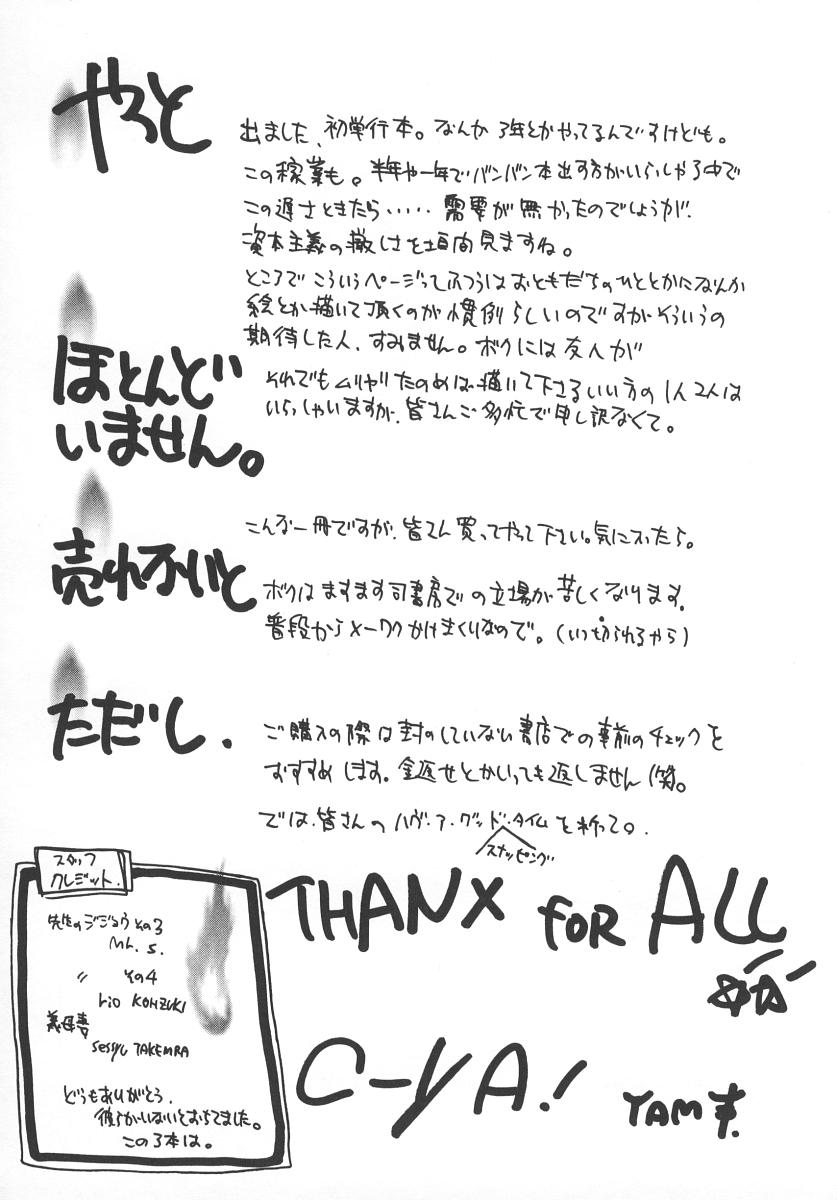 やっと
出ました、初単行本。なんか3年とかやってるんですけども。
この稼業も。半年や一年でバンバン本出す方がいらっしゃる中で
この遅さときたら‥‥‥需要が無かったのでしょうが、
資本主義の厳しさを垣間見ますね。
ところでこういうページってふつうはおともだちのひととかになんか
絵とか描いて頂くのが慣例らしいのですがそういうの
期待した人、すみません。ボクには友人が
ほとんど
いません。
それでもムリヤリたのめば描いて下さるいい方の1人2人は
いらっしゃいますが、皆さんご多忙で申し訳なくて。
こんな一冊ですが、皆さん買ってやって下さい。気に入ったら。
売れないと
ボクはますます司書房での立場が苦しくなります。
普段からメーワクかけまくりなので。(いつ切られるやら)
ただし、
ご購入の際は封のしていない書店での事前のチェックを
おすすめします。金返せとかいっても返しません(笑)。
では、皆さんのハヴ・ア・グッド・タイムを祈って。
スナッピング
THANX FOR ALL
C-YA!
YAM
スタッフ
クレジット.
先生のジジョウ その3
Mr. S.
〃 その4
rio KOHZUKI
義母妻
sessyu TAKEMRA
どうもありがとう.
彼らがいないとおちてました。
この3本は。